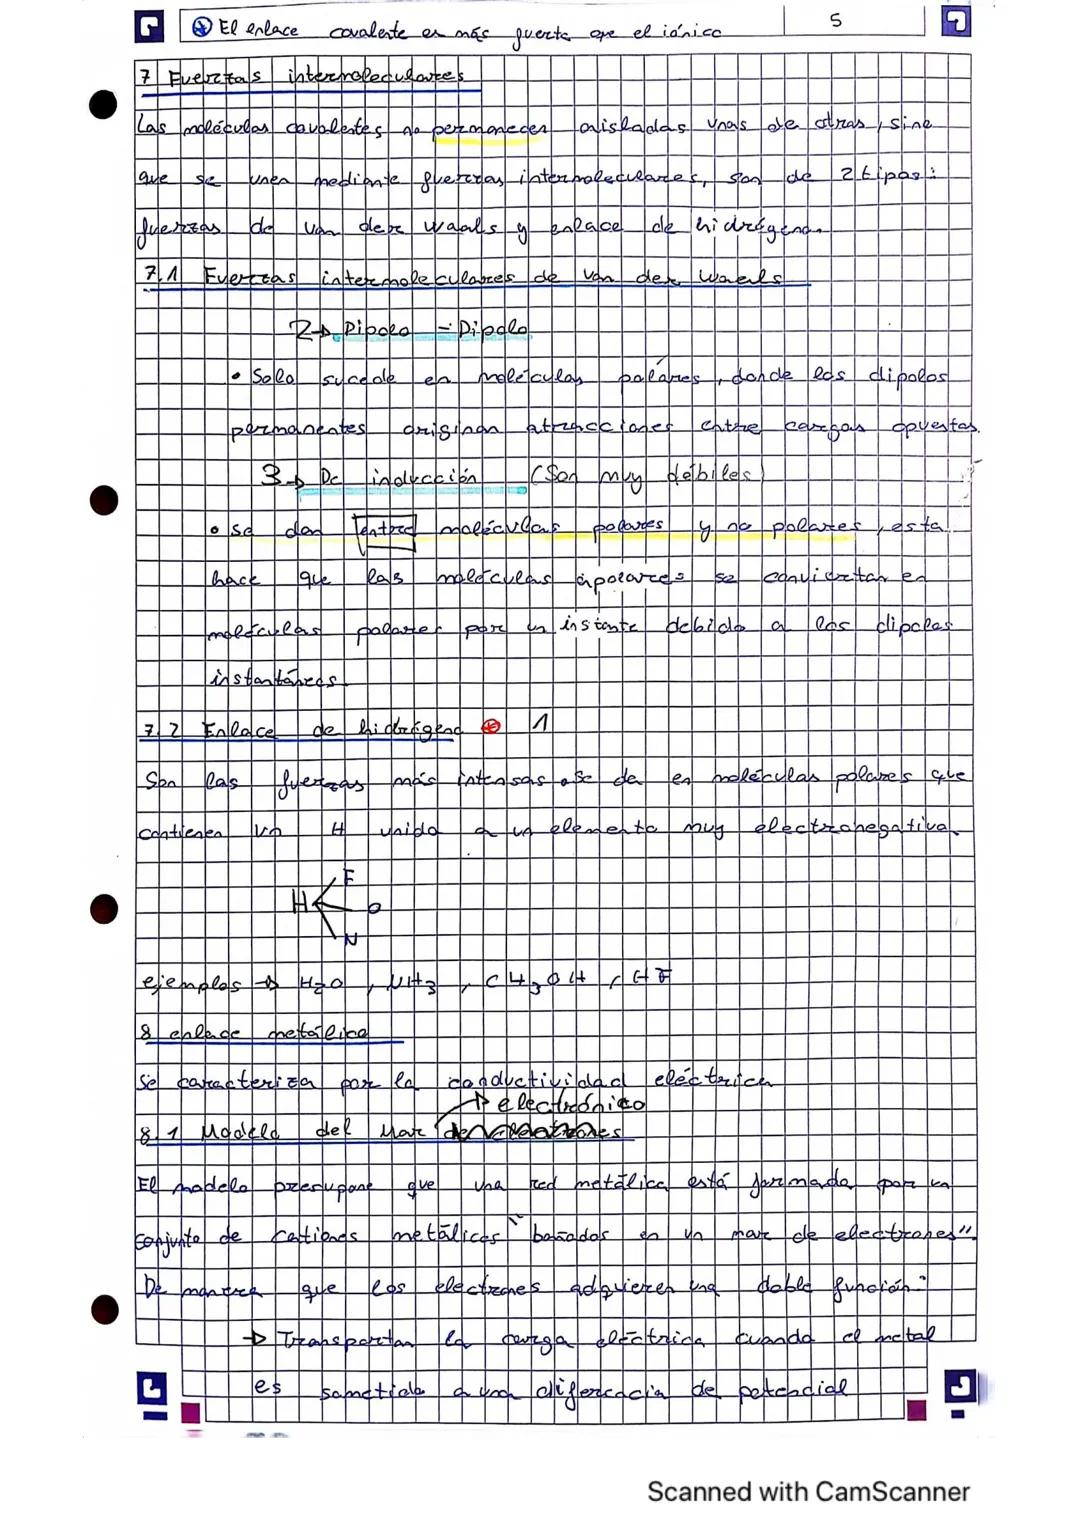 ⊛ El enlace covalente es más fuerte que el iónico
5
7 Fuerzas intermoleculares
Las moléculas covalentes no permanecen aisladas unas de otras, sino
que se unen mediante fuerzas intermoleculares, son de 2 tipos:
fuerzas de van der waals y enlace de hidrógeno.
7.1 Fuerzas intermoleculares de van der Waals
2→ Dipolo - Dipolo
• Solo sucede en moléculas polares, donde los dipolos
permanentes originan atracciones entre cargas opuestas.
3→ De inducción (Son muy débiles)
• se dan entre moléculas polares y no polares, esto
hace que las moléculas apolares se conviertan en
moléculas polares por un instante debido a los dipolos
instantáneos.
7.2 Enlace de hidrógeno ⊛ 1
Son las fuerzas más intensas, se da en moléculas polares que
contienen un H unido a un elemento muy electronegativo
F
H
O
N
ejemplos → H2O, NH3, CH3OH, HF
8 enlace metálico
Se caracteriza por la conductividad eléctrica
→ electrónico
8.1 Modelo del Mar de electrones
El modelo presupone que una red metálica está formada por un
conjunto de cationes metálicos "bañados en un mar de electrones".
De manera que los electrones adquieren una doble función:
→ Transportan la carga eléctrica cuando el metal
es sometido a una diferencia de potencial
Scanned with CamScanner